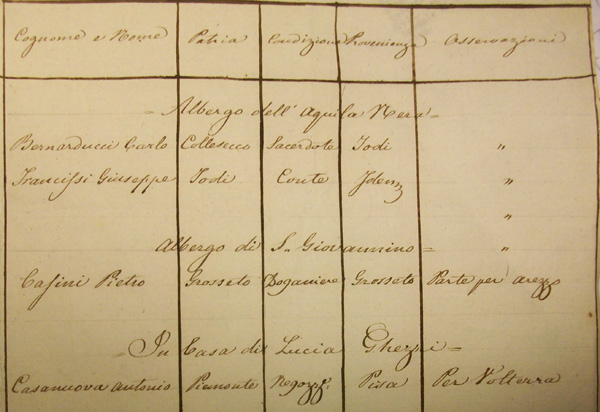 Cognome e Nome Patria Condizione Provenienza Osservazioni
= Albergo dell'Aquila Nera =
Bernarducci Carlo Collesecco Sacerdote Todi "
Francissi Giuseppe Todi Conte Idem "
"
Albergo di S. Giovannino = "
Casini Pietro Grosseto Doganiere Grosseto Parte per Arezzo
= In Casa di Lucia Ghezzi =
Casanuova Antonio Piemonte Negozze. Pisa Per Volterra